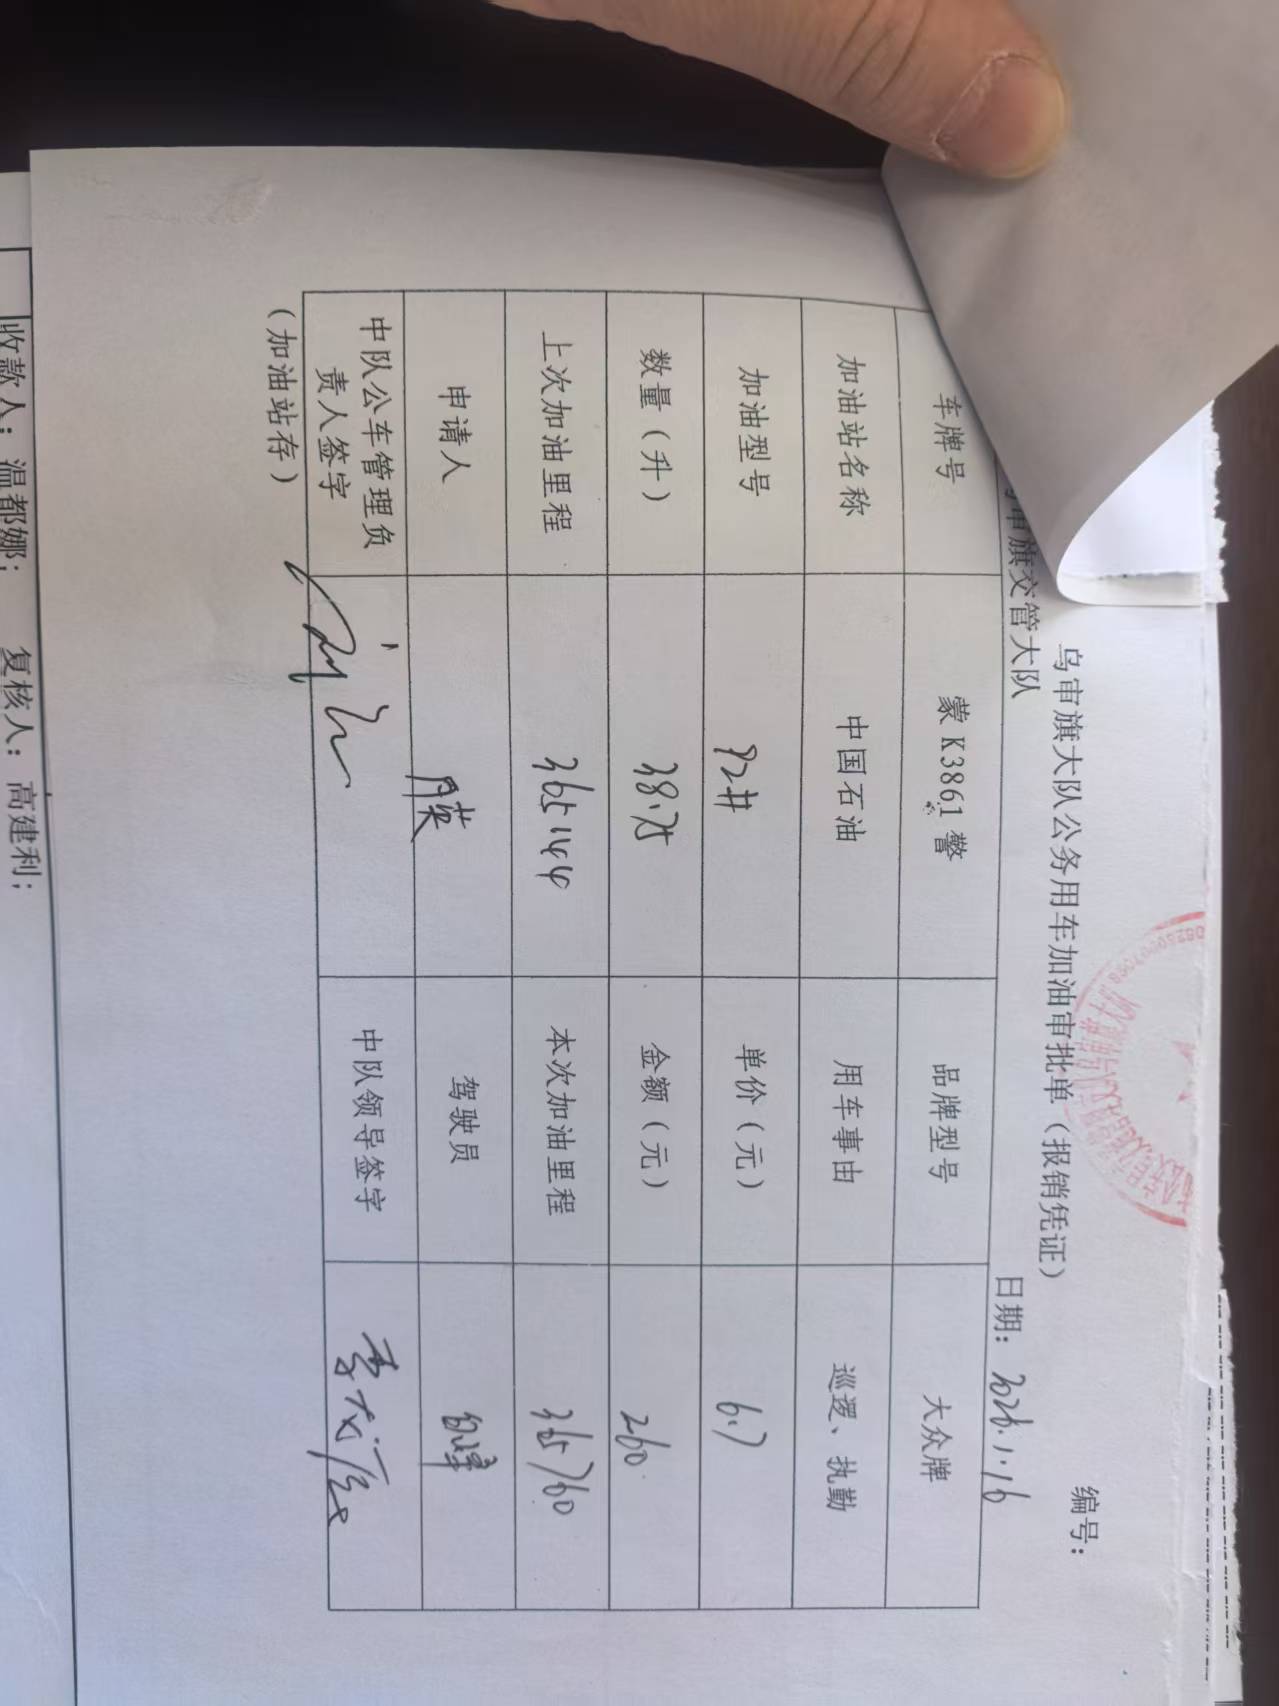 乌审旗大队公务用车加油审批单（报销凭证）
编号：
审旗交管大队 日期：2026.1.16
车牌号 蒙K3861警 品牌型号 大众牌
加油站名称 中国石油 用车事由 巡逻、执勤
加油型号 92# 单价（元） 6.7
数量（升） 38.75 金额（元） 260
上次加油里程 365144 本次加油里程 365760
申请人 驾驶员
中队公车管理负责人签字 中队领导签字
（加油站存）
收款人：温都娜； 复核人：高建利；